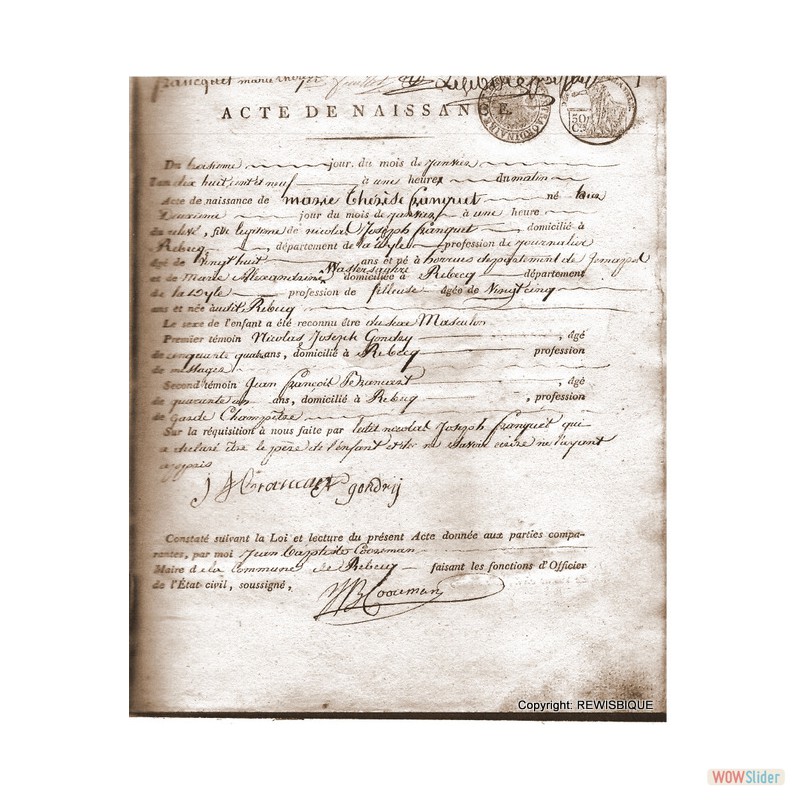 francquet marie
ACTE DE NAISSANCE.
50
Cs
Du troisieme jour du mois de janvier
l'an dix huit cent et neuf à une heure du matin
Acte de naissance de marie thérèse franquet né hier
Deuxieme jour du mois de janvier à une heure
de relevé, fille legitime de nicolas Joseph franquet, domicilié à
Rebecq, département de la dyle profession de journalier
âgé de vingt huit ans et né à horrues departement de Jemappe
et de Marie Alexandrine domiciliée à Rebecq département
de la Dyle profession de fileuse âgée de Vingt cinq
ans et née audit Rebecq
Le sexe de l'enfant a été reconnu être du sexe Masculin
Premier témoin Nicolas Joseph Gondry, âgé
de cinquante quatre ans, domicilié à Rebecq profession
de messager
Second témoin Jean françois, âgé
de quarante ans, domicilié à Rebecq, profession
de Garde Champêtre
Sur la réquisition à nous faite par ledit nicolas Joseph franquet qui
a declaré être le père de l'enfant et de ne savoir ecrire ne l'ayant
appris
gondrij
Constaté suivant la Loi et lecture du présent Acte donnée aux parties compa-
rantes, par moi Jean baptiste Cooreman
Maire de la commune de Rebecq faisant les fonctions d'Officier
de l'État civil, soussigné,
JB Cooreman
Copyright: REWISBIQUE
WOWSlider